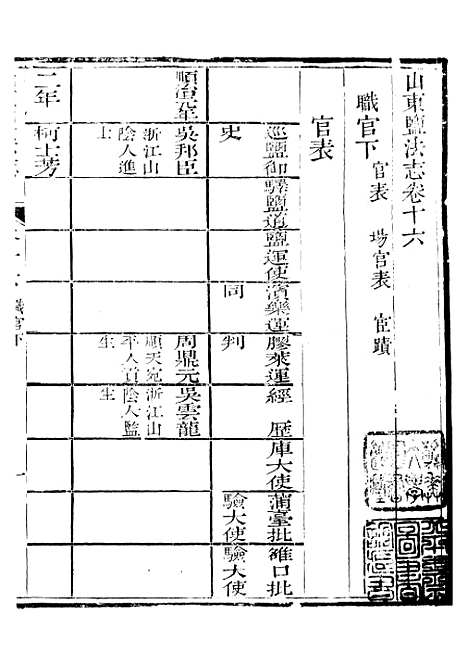 山東鹽法志卷十六
職官下 官表 場官表 宦蹟
官表
巡鹽御史
驛鹽道
鹽運使
濱樂運同
膠萊運判
經歷
庫大使
蒲臺批驗大使
雒口批驗大使
順治元年
吳邦臣 浙江山陰人進士
周鼎元 順天宛平人貢生
吳雲龍 浙江山陰人監生
二年
柯士芳
職官下